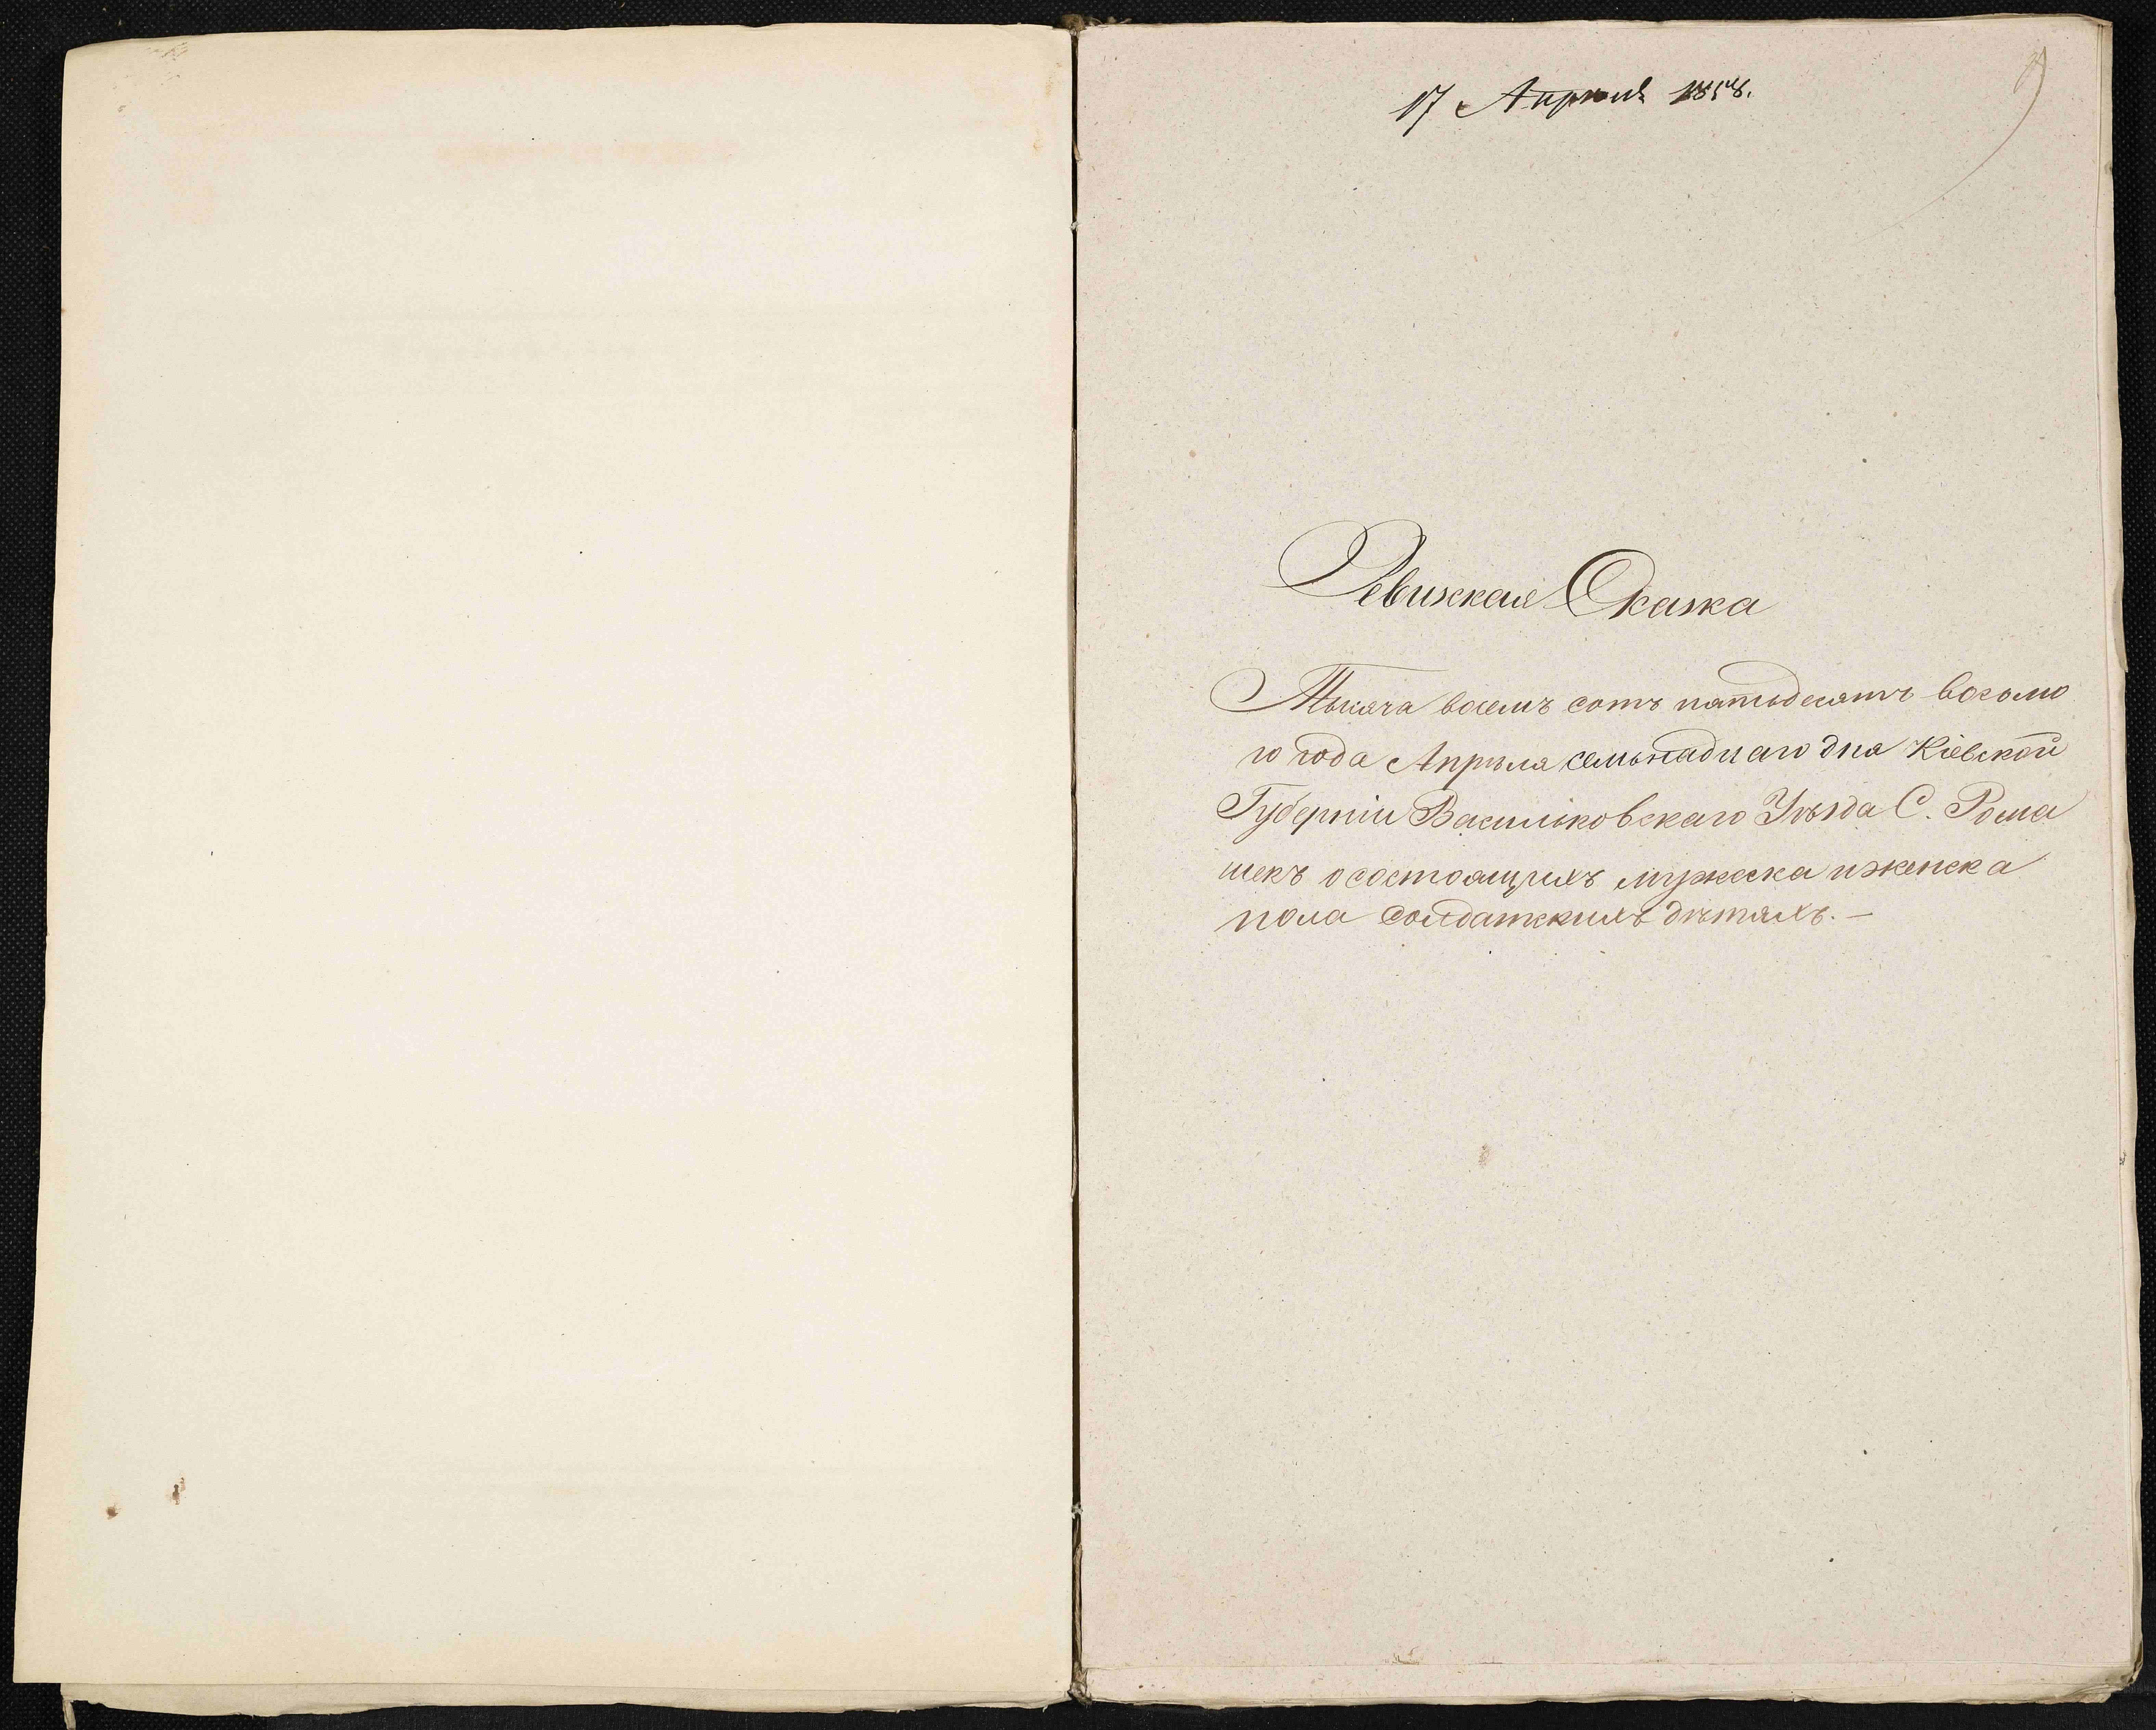 17 Апрѣля 1858.
Ревизская Сказка
Тысяча восемъ сотъ пятьдесятъ восьмо
го года Апрѣля семьнадцаго дня Кіевской
Губерніи Васильковскаго Уѣзда С. Рома
шекъ о состоящихъ мужеска и женска
пола солдатскихъ дѣтяхъ. —